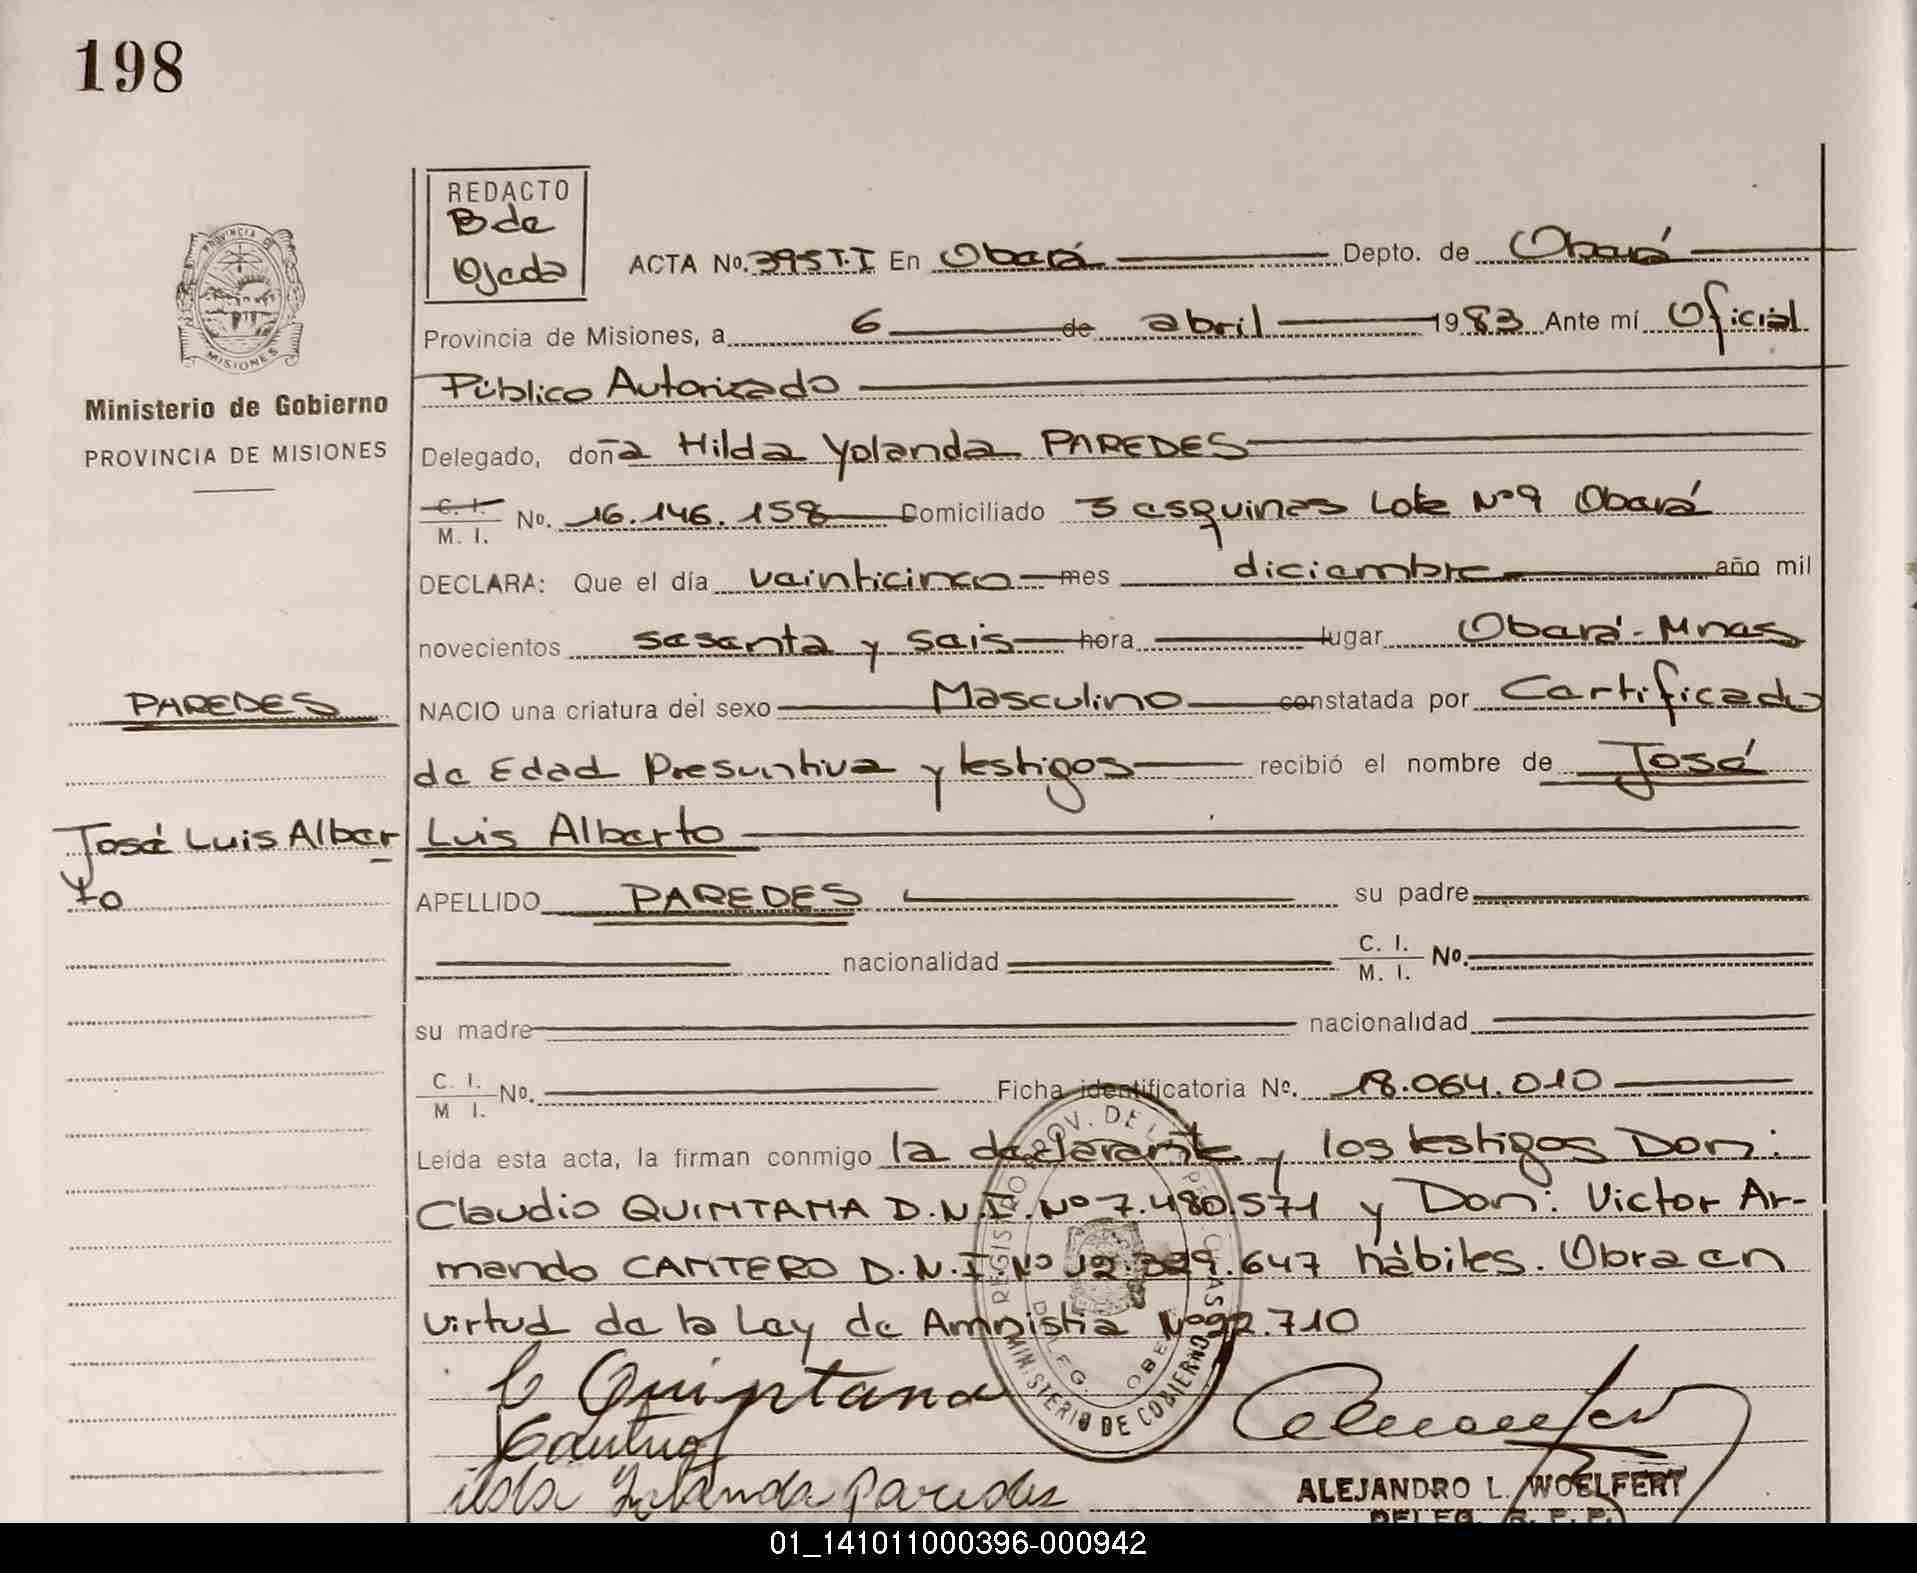 198
REDACTO
B de
Ojeda
ACTA No. 395 T.I En Oberá Depto. de Oberá
Provincia de Misiones, a 6 de abril 1983 Ante mí Oficial
Público Autorizado
PROVINCIA DE
MISIONES
Ministerio de Gobierno
PROVINCIA DE MISIONES
Delegado, doña Hilda Yolanda PAREDES
C. I.
M. I. No. 16.146.158 Domiciliado 3 esquinas Lote Nº 9 Oberá
DECLARA: Que el día veinticinco mes diciembre año mil
novecientos sesenta y seis hora lugar Oberá-Mnes
PAREDES
NACIO una criatura del sexo Masculino constatada por Certificado
de Edad Presuntiva y testigos recibió el nombre de José
José Luis Alber
to
Luis Alberto
APELLIDO PAREDES su padre
nacionalidad C. I.
M. I. No.
su madre nacionalidad
C. I.
M I. No. Ficha identificatoria No. 18.064.010
Leída esta acta, la firman conmigo la declarante y los testigos Don:
Claudio QUINTANA D.N.I. Nº 7.480.571 y Don: Victor Ar-
mando CANTERO D.N.I. Nº 12. .647 hábiles. Obra en
virtud de la Ley de Amnistia Nº 22.710
REGISTRO PROV. DE L PERSONAS
DELEG. OBE
MINISTERIO DE GOBIERNO
C Quintana
ilda Yolanda Paredes
ALEJANDRO L. WOELFERT
DELEG. R. P. P.
01_141011000396-000942